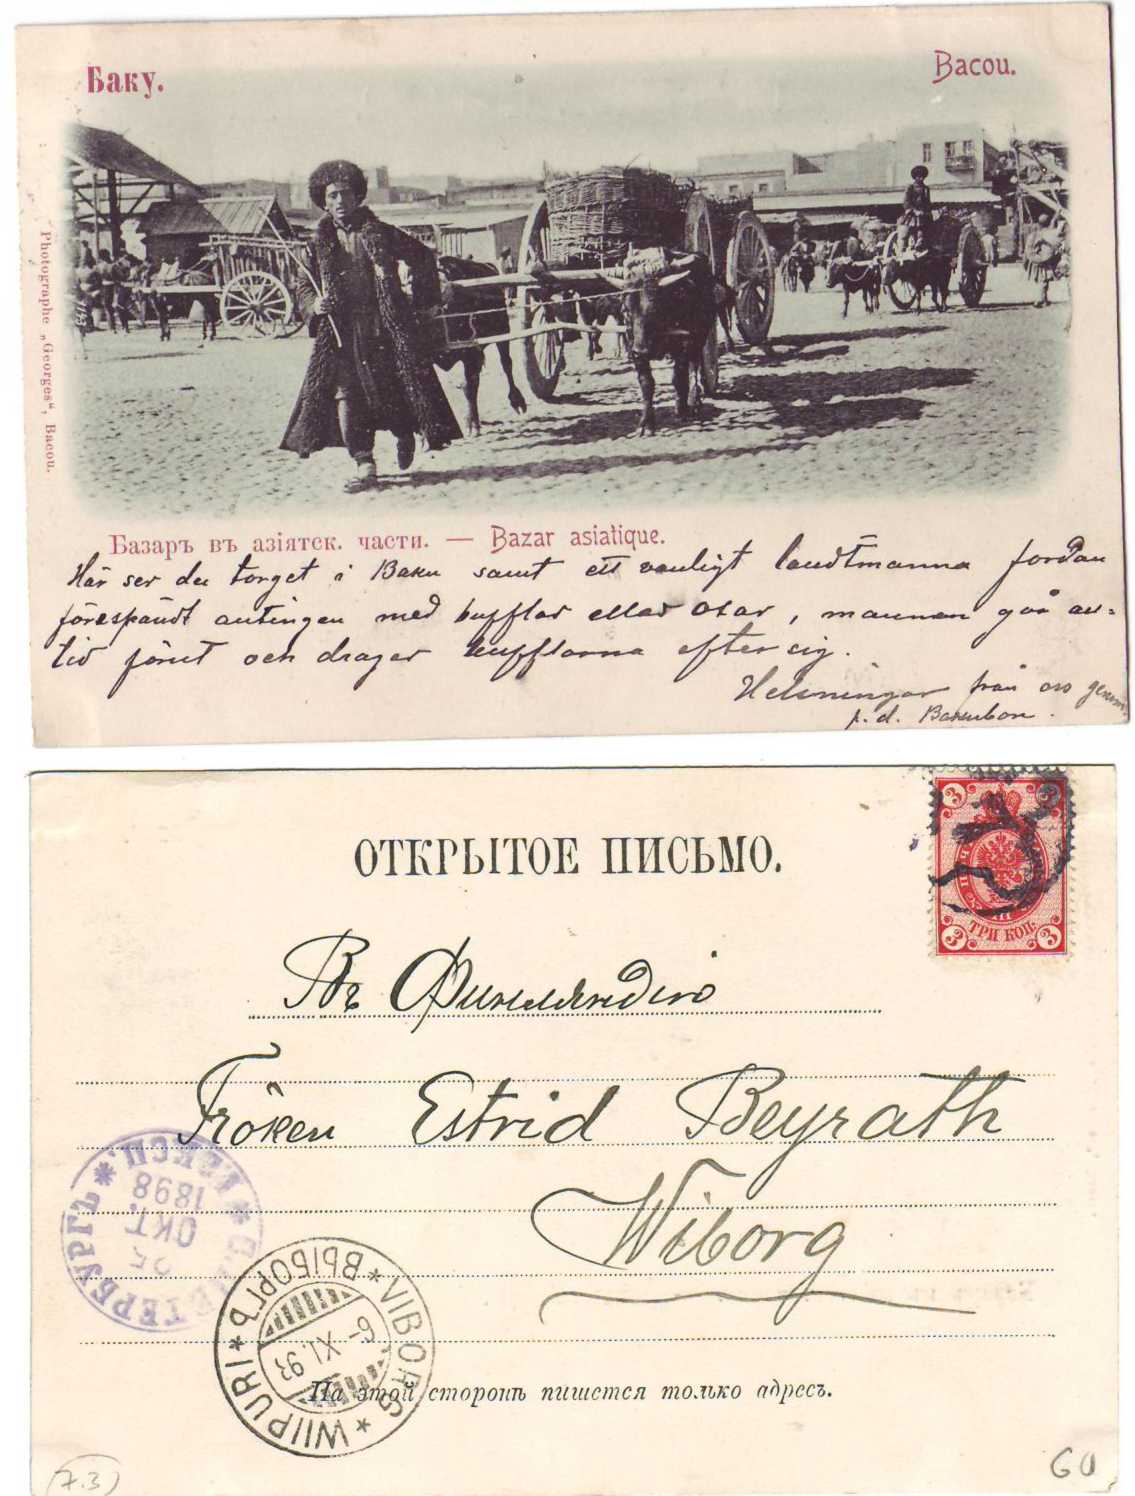 Баку.
Bacou.
Photographe „Georges“, Bacou.
Базаръ въ азіятск. части. — Bazar asiatique.
Här ser du torget i Baku samt ett vanligt landtmanna fordon
förespändt antingen med bufflar eller oxar, mannen går all=
tid förut och drager bufflarna efter sig.
Helsningar från oss genom
p. d. Bakubon.
ОТКРЫТОЕ ПИСЬМО.
3 3
ТРИ КОП.
3 3
Въ Финляндію
Fröken Estrid Beyrath
Wiborg
С. ПЕТЕРБУРГЪ
25
ОКТ.
1898
VIBORG * WIIPURI * ВЫБОРГЪ *
6- XI. 98
На этой сторонѣ пишется только адресъ.
(7.3)
GO